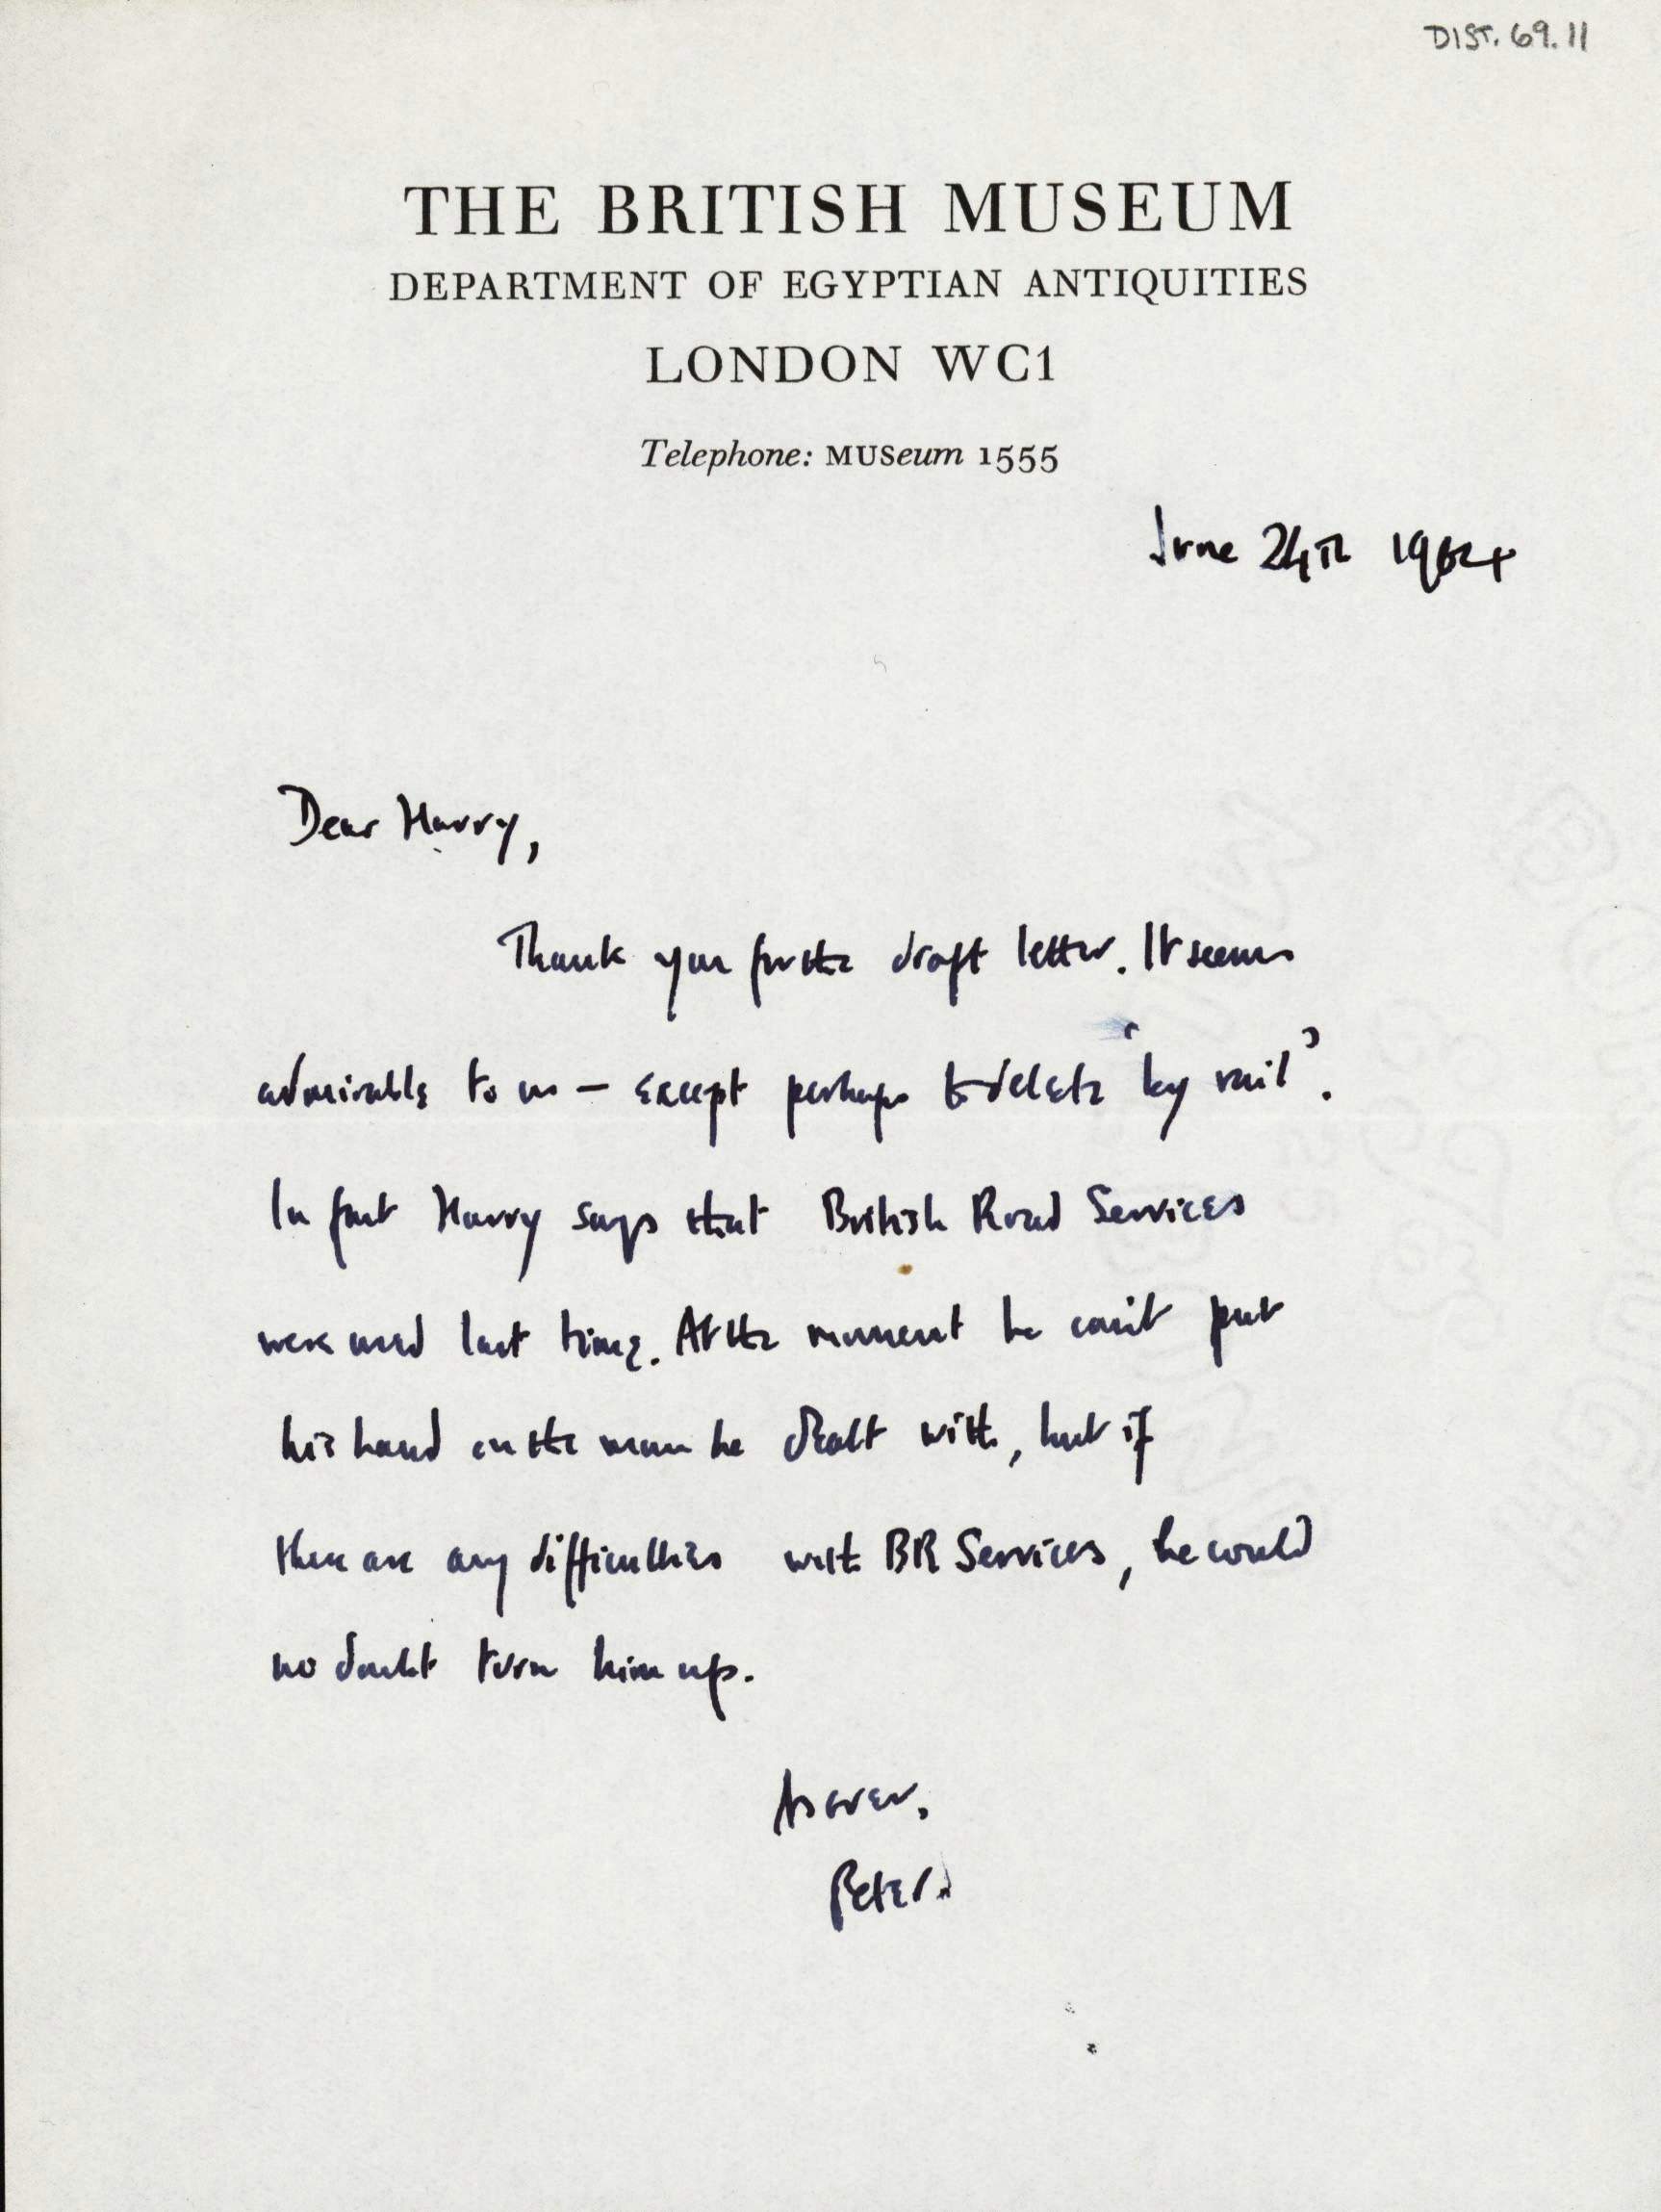 DIST. 69.11
THE BRITISH MUSEUM
DEPARTMENT OF EGYPTIAN ANTIQUITIES
LONDON WC1
Telephone: MUSeum 1555
June 24th 1964
Dear Harry,
Thank you for the draft letter. It seems
admirable to us – except perhaps to delete 'by rail'.
In fact Harry says that British Road Services
were used last time. At the moment he can't put
his hand on the man he dealt with, but if
there are any difficulties with BR Services, he could
no doubt turn him up.
As ever,
Peter.